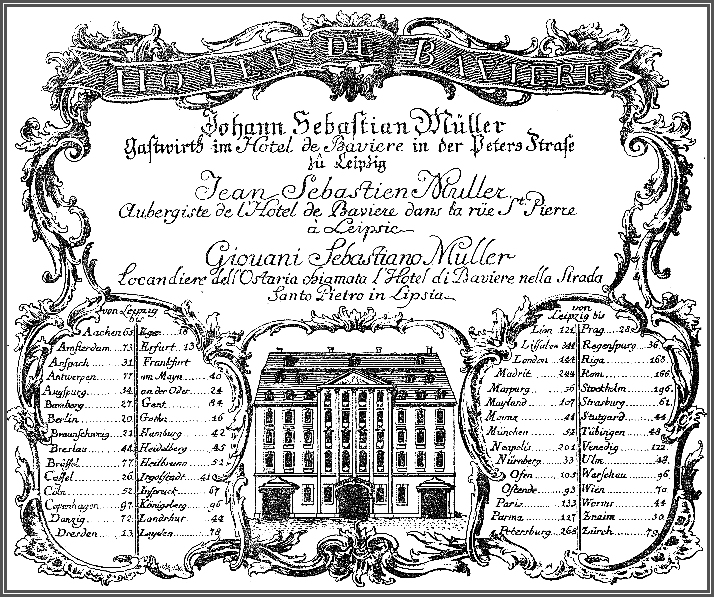 HOTEL DE BAVIERE
Johann Sebastian Müller
Gastwirth im Hôtel de Baviere in der Peters Straße
zu Leipzig
Jean Sebastien Muller
Aubergiste de l'Hotel de Baviere dans la rüe St Pierre
à Leipsic
Giouani Sebastiano Muller
Locandiere dell'Ostaria chiamata l'Hotel di Baviere nella Strada
Santo Pietro in Lipsia
von Leipzig
bis
Aachen 65
Amsterdam 73
Anspach 31
Antwerpen 77
Augspurg
Bamberg 27
Berlin 20
Braunschweig
Breslau
Brüssel 77
Cassel 26
Cöln 52
Copenhagen 97
Danzig 72
Dresden 13
Eger 18
Erfurt 13
Frankfurt
am Mayn 40
an der Oder 24
Gent 84
Gotha 16
Hamburg 42
Heidelberg 45
Heilbrunn 52
Ingolstadt
Inspruck 67
Königsberg 96
Landshut 44
Leyden 78
von
Leipzig bis
Lion 121
Lissabon
London
Madrit
Marpurg 36
Mayland 107
Mainz
München 52
Neapolis 201
Nürnberg 33
Ofen 103
Ostende 93
Paris 133
Parma 127
Petersburg 268
Prag 28
Regenspurg 36
Riga 168
Rom 166
Stockholm 196
Strasburg 61
Stutgard 44
Tübingen 48
Venedig 122
Ulm 48
Warschau 96
Wien 70
Worms 44
Znaim 50
Zürch 79